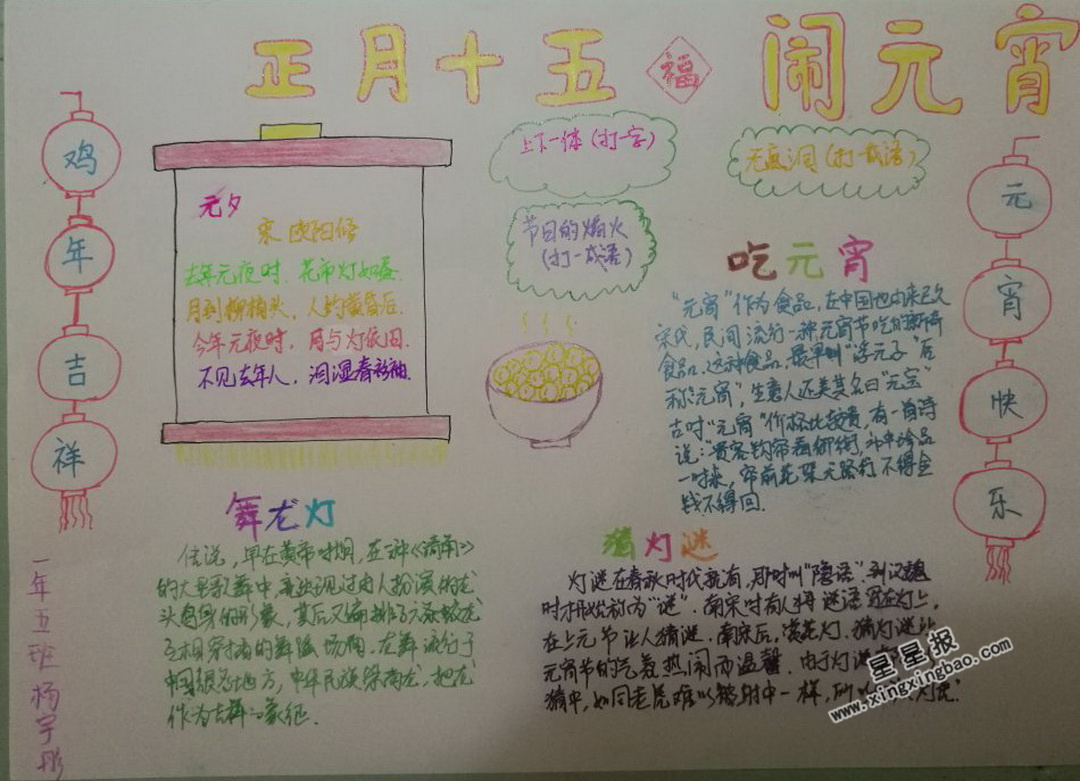 正月十五 福 闹元宵
鸡年吉祥
元夕
宋 欧阳修
去年元夜时，花市灯如昼
月到柳梢头，人约黄昏后
今年元夜时，月与灯依旧
不见去年人，泪湿春衫袖
上下一体（打一字）
元宵洞（打一成语）
节日的焰火
（打一成语）
元宵快乐
吃元宵
“元宵”作为食品，在中国也由来已久
宋代，民间流行一种元宵节吃的新奇
食品，这种食品，最早叫“浮元子”后
称“元宵”，生意人还美其名曰“元宝”
古时“元宵”价格比较贵，有一首诗
说：贵客钩帘看御街，市中珍品
一时来，帘前花架无路行，不得金
钱不得回.
舞龙灯
传说，早在黄帝时期，在一种《清角》
的大型歌舞中，就出现过由人扮演的龙
头鸟身的形象，其后又编排了六条蛟龙
互相穿插的舞蹈场面．在舞流行于
中国很多地方，中华民族崇尚龙，把龙
作为吉祥的象征.
猜灯谜
灯谜在春秋时代就有，那时叫“隐语”，到汉魏
时才开始称为“谜”．南宋时有人将谜语写在灯上，
在上元节让人猜谜．南宋后，赏花灯．猜灯谜让
元宵节的气氛热闹而温馨．由于灯谜
猜中，如同老虎难以被射中一样，所以
一年五班 杨宇彤
星星报
www.xingxingbao.com